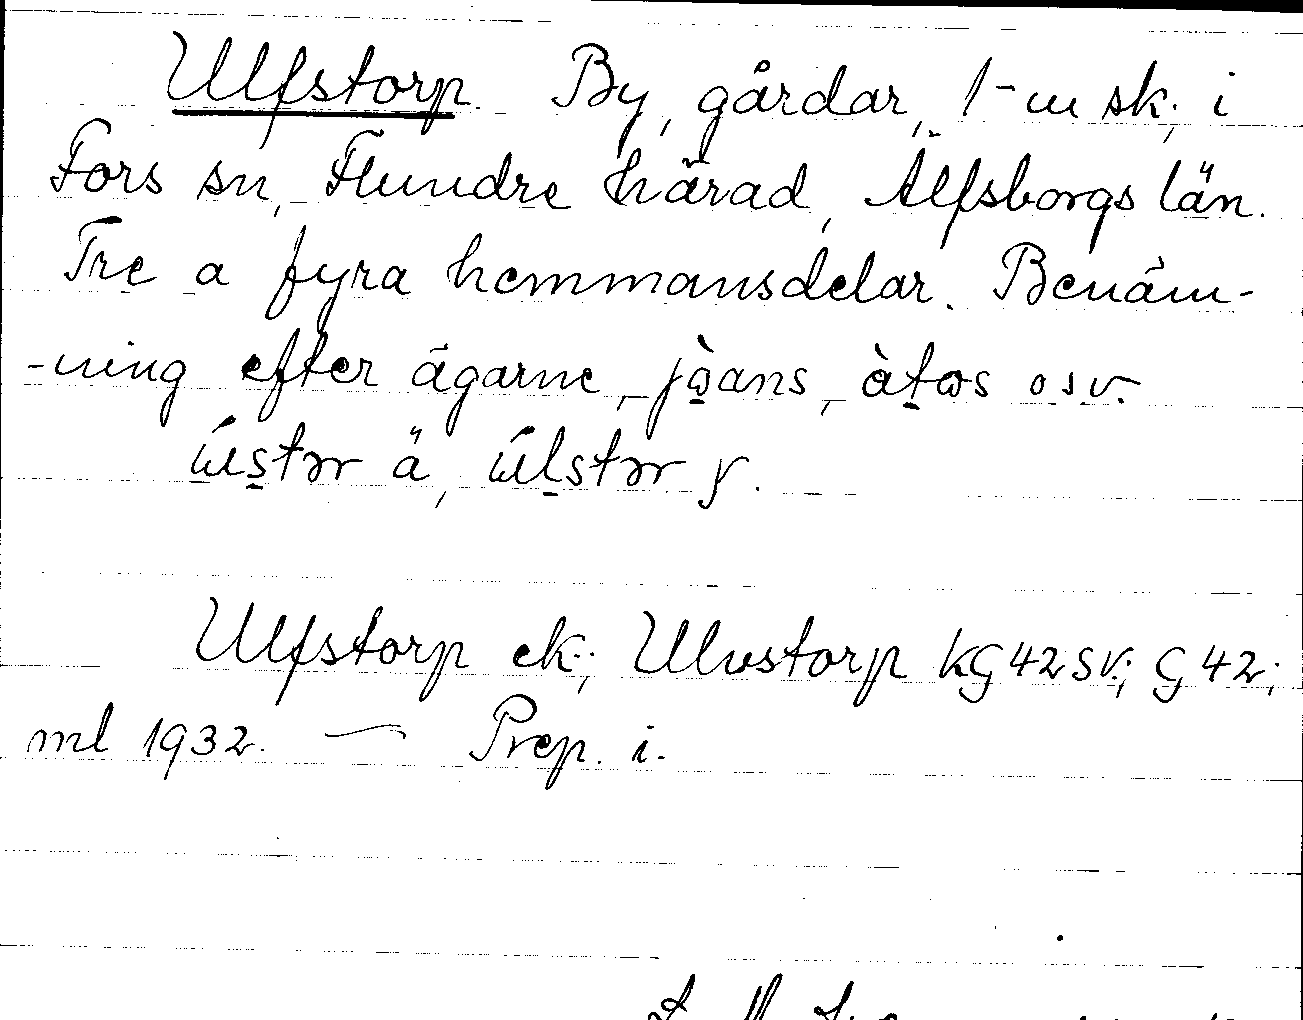 Ulfstorp. By, gårdar, 1-m sk; i
Fors sn, Flundre härad, Älfsborgs län.
Tre a fyra hemmansdelar. Benäm-
-ning efter ägarne, jòans, àtos osv.
ústər ä, úlstər y.
Ulfstorp ek; Ulvstorp kG 42 SV; G 42;
ml 1932. — Prep. i.